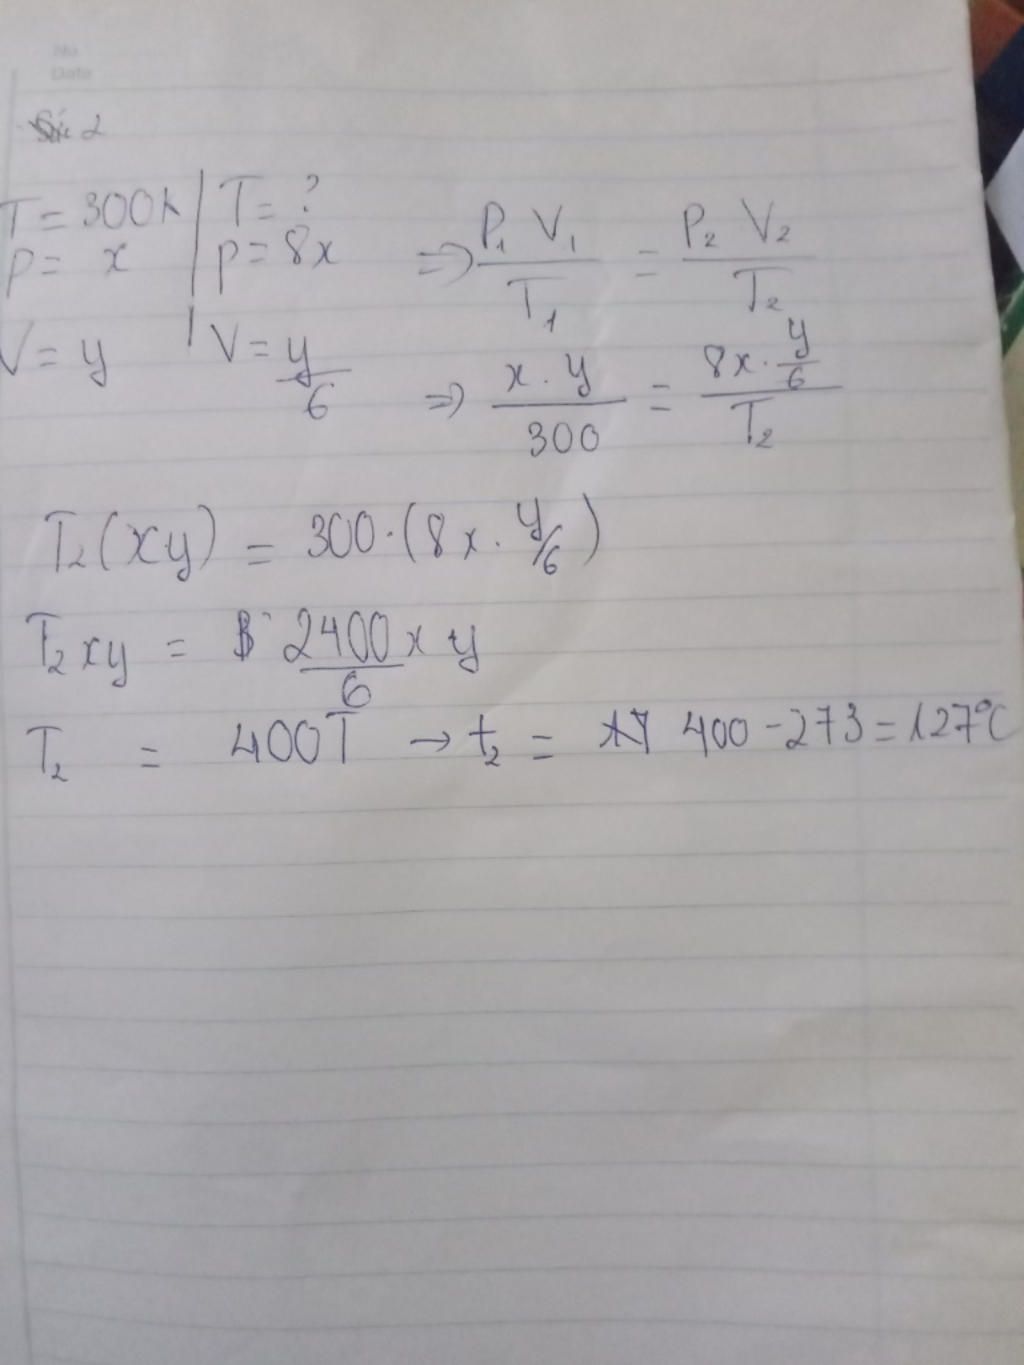 No
Date
2
T = 300K | T = ?
p = x | p = 8x
V = y | V = y/6
=> P₁ V₁ / T₁ = P₂ V₂ / T₂
=> x . y / 300 = 8x . y/6 / T₂
T₂(xy) = 300.(8x . y/6)
T₂xy = 2400/6 x y
T₂ = 400T → t₂ = 400 - 273 = 127°C